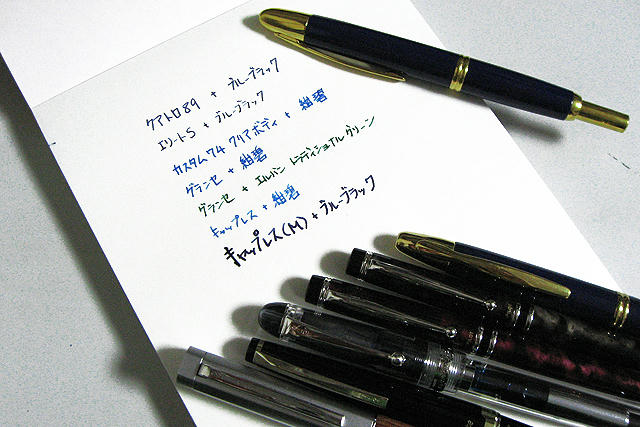 クアトロ89 + ブルーブラック
エリートS + ブルーブラック
カスタム74 クリアボディ + 紺碧
グランセ + 紺碧
グランセ + エルバン トラディショナルグリーン
キャップレス + 紺碧
キャップレス(M) + ブルーブラック